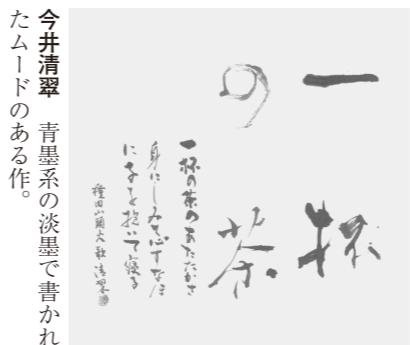 一杯
の茶
一杯の茶のあたたかさ
身にしみて心すなほ
に子を抱いて寝る
種田山頭火歌 清翠
今井清翠　青墨系の淡墨で書かれ
たムードのある作。